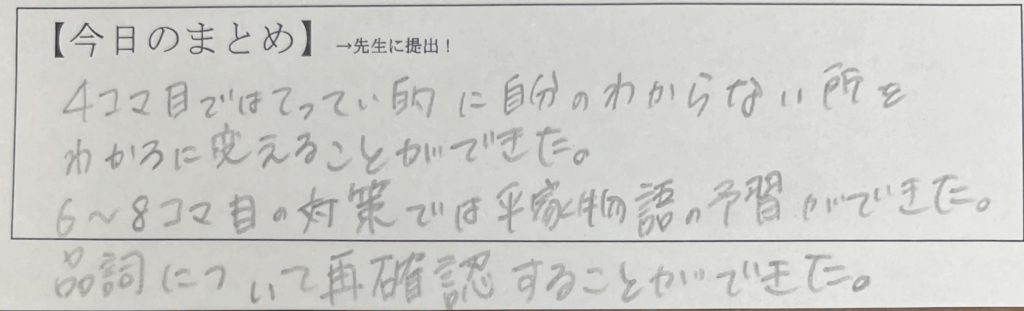 【今日のまとめ】 →先生に提出！
4コマ目ではてってい的に自分のわからない所を
わかるに変えることができた。
6〜8コマ目の対策では平家物語の予習ができた。
品詞について再確認することができた。